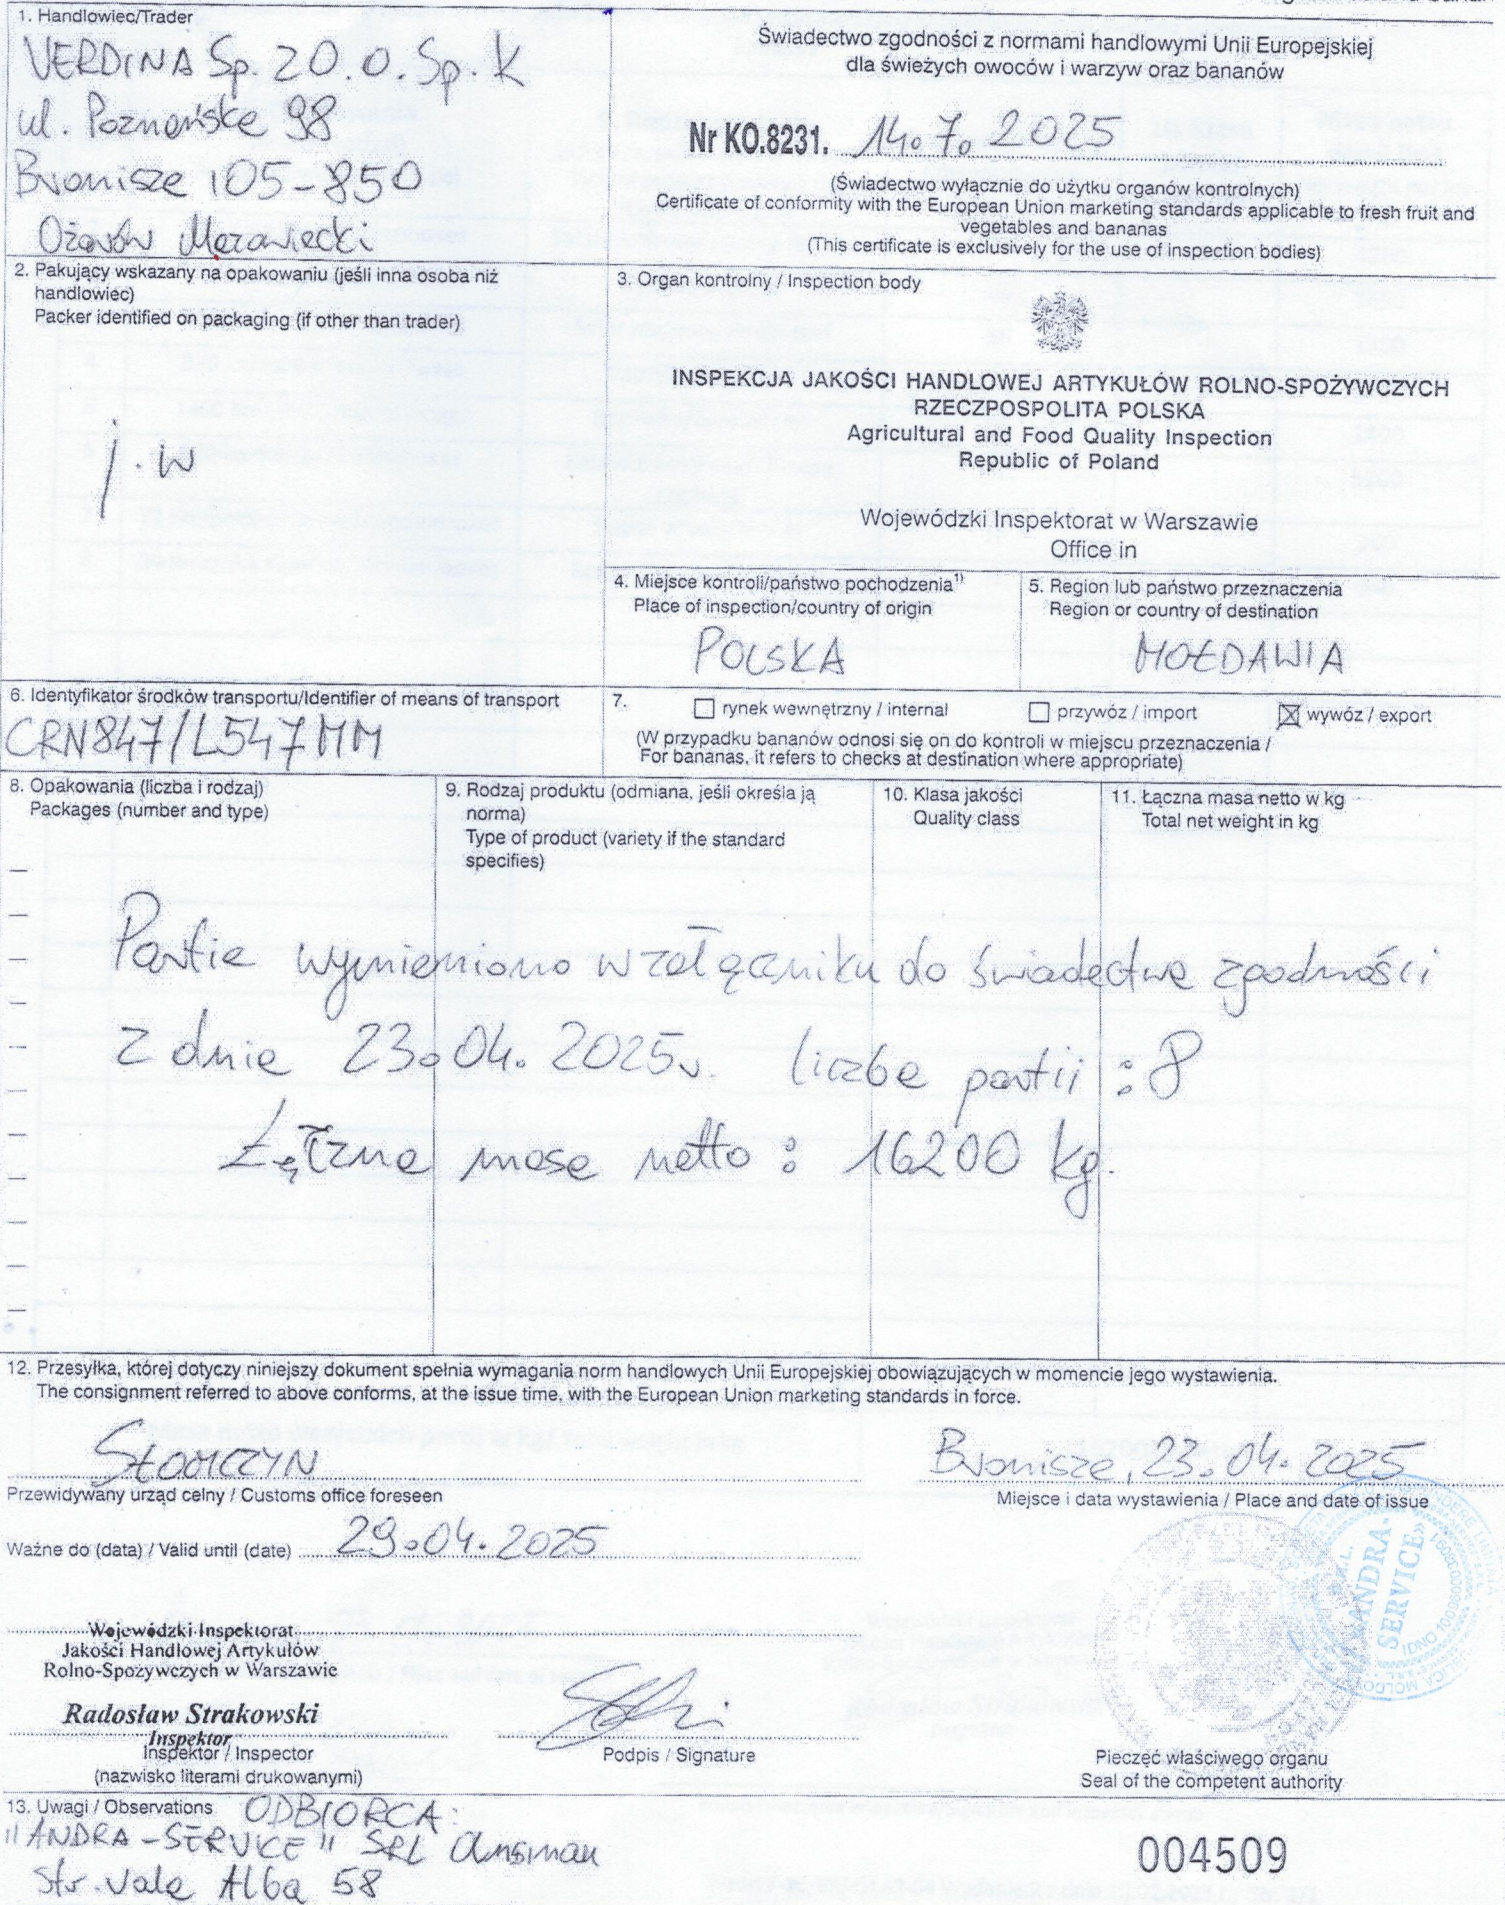 1. Handlowiec/Trader
VERDINA Sp. z O.O. Sp. K
ul. Poznańska 98
Bronisze 105-850
Ożarów Mazowiecki
Świadectwo zgodności z normami handlowymi Unii Europejskiej
dla świeżych owoców i warzyw oraz bananów
Nr KO.8231. 14.7.2025
(Świadectwo wyłącznie do użytku organów kontrolnych)
Certificate of conformity with the European Union marketing standards applicable to fresh fruit and
vegetables and bananas
(This certificate is exclusively for the use of inspection bodies)
2. Pakujący wskazany na opakowaniu (jeśli inna osoba niż
handlowiec)
Packer identified on packaging (if other than trader)
j.w
3. Organ kontrolny / Inspection body
INSPEKCJA JAKOŚCI HANDLOWEJ ARTYKUŁÓW ROLNO-SPOŻYWCZYCH
RZECZPOSPOLITA POLSKA
Agricultural and Food Quality Inspection
Republic of Poland
Wojewódzki Inspektorat w Warszawie
Office in
4. Miejsce kontroli/państwo pochodzenia¹⁾
Place of inspection/country of origin
POLSKA
5. Region lub państwo przeznaczenia
Region or country of destination
MOŁDAWIA
6. Identyfikator środków transportu/Identifier of means of transport
CRN847/L547MM
7. rynek wewnętrzny / internal przywóz / import wywóz / export
(W przypadku bananów odnosi się on do kontroli w miejscu przeznaczenia /
For bananas, it refers to checks at destination where appropriate)
8. Opakowania (liczba i rodzaj)
Packages (number and type)
9. Rodzaj produktu (odmiana, jeśli określa ją
norma)
Type of product (variety if the standard
specifies)
10. Klasa jakości
Quality class
11. Łączna masa netto w kg
Total net weight in kg
Partie wymieniono w załączniku do świadectwa zgodności
z dnia 23.04.2025r. liczba partii : 8
Łączna masa netto : 16200 kg.
12. Przesyłka, której dotyczy niniejszy dokument spełnia wymagania norm handlowych Unii Europejskiej obowiązujących w momencie jego wystawienia.
The consignment referred to above conforms, at the issue time, with the European Union marketing standards in force.
SŁOMCZYN
Przewidywany urząd celny / Customs office foreseen
Bronisze, 23.04.2025
Miejsce i data wystawienia / Place and date of issue
Ważne do (data) / Valid until (date) 29.04.2025
Wojewódzki Inspektorat
Jakości Handlowej Artykułów
Rolno-Spożywczych w Warszawie
Radosław Strakowski
Inspektor
Inspektor / Inspector
(nazwisko literami drukowanymi)
Podpis / Signature
S.R.L.
ANDRA-
SERVICE»
Pieczęć właściwego organu
Seal of the competent authority
13. Uwagi / Observations ODBIORCA:
"ANDRA-SERVICE" SRL
Str. Vale Alba 58
004509